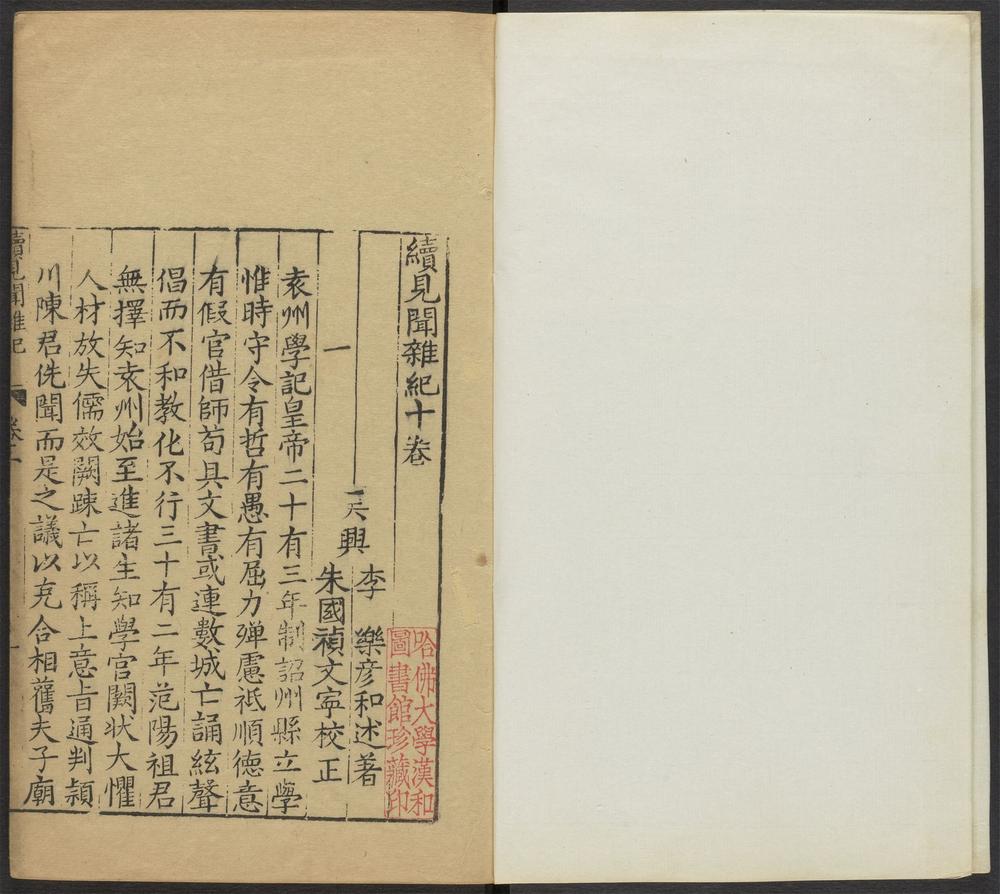 續見聞雜紀十卷
吳興
李樂彦和述著
朱國禎文寧校正
一
袁州學記皇帝二十有三年制詔州縣立學
惟時守令有哲有愚有屈力殫慮祗順德意
有假官借師苟具文書或連數城亡誦絃聲
倡而不和教化不行三十有二年范陽祖君
無擇知袁州始至進諸生知學宮闕狀大懼
人材放失儒效闕踈亡以稱上意旨通判潁
川陳君侁聞而是之議以克合相舊夫子廟
續見聞雜紀
卷二
一
哈佛大學漢和
圖書館珍藏印